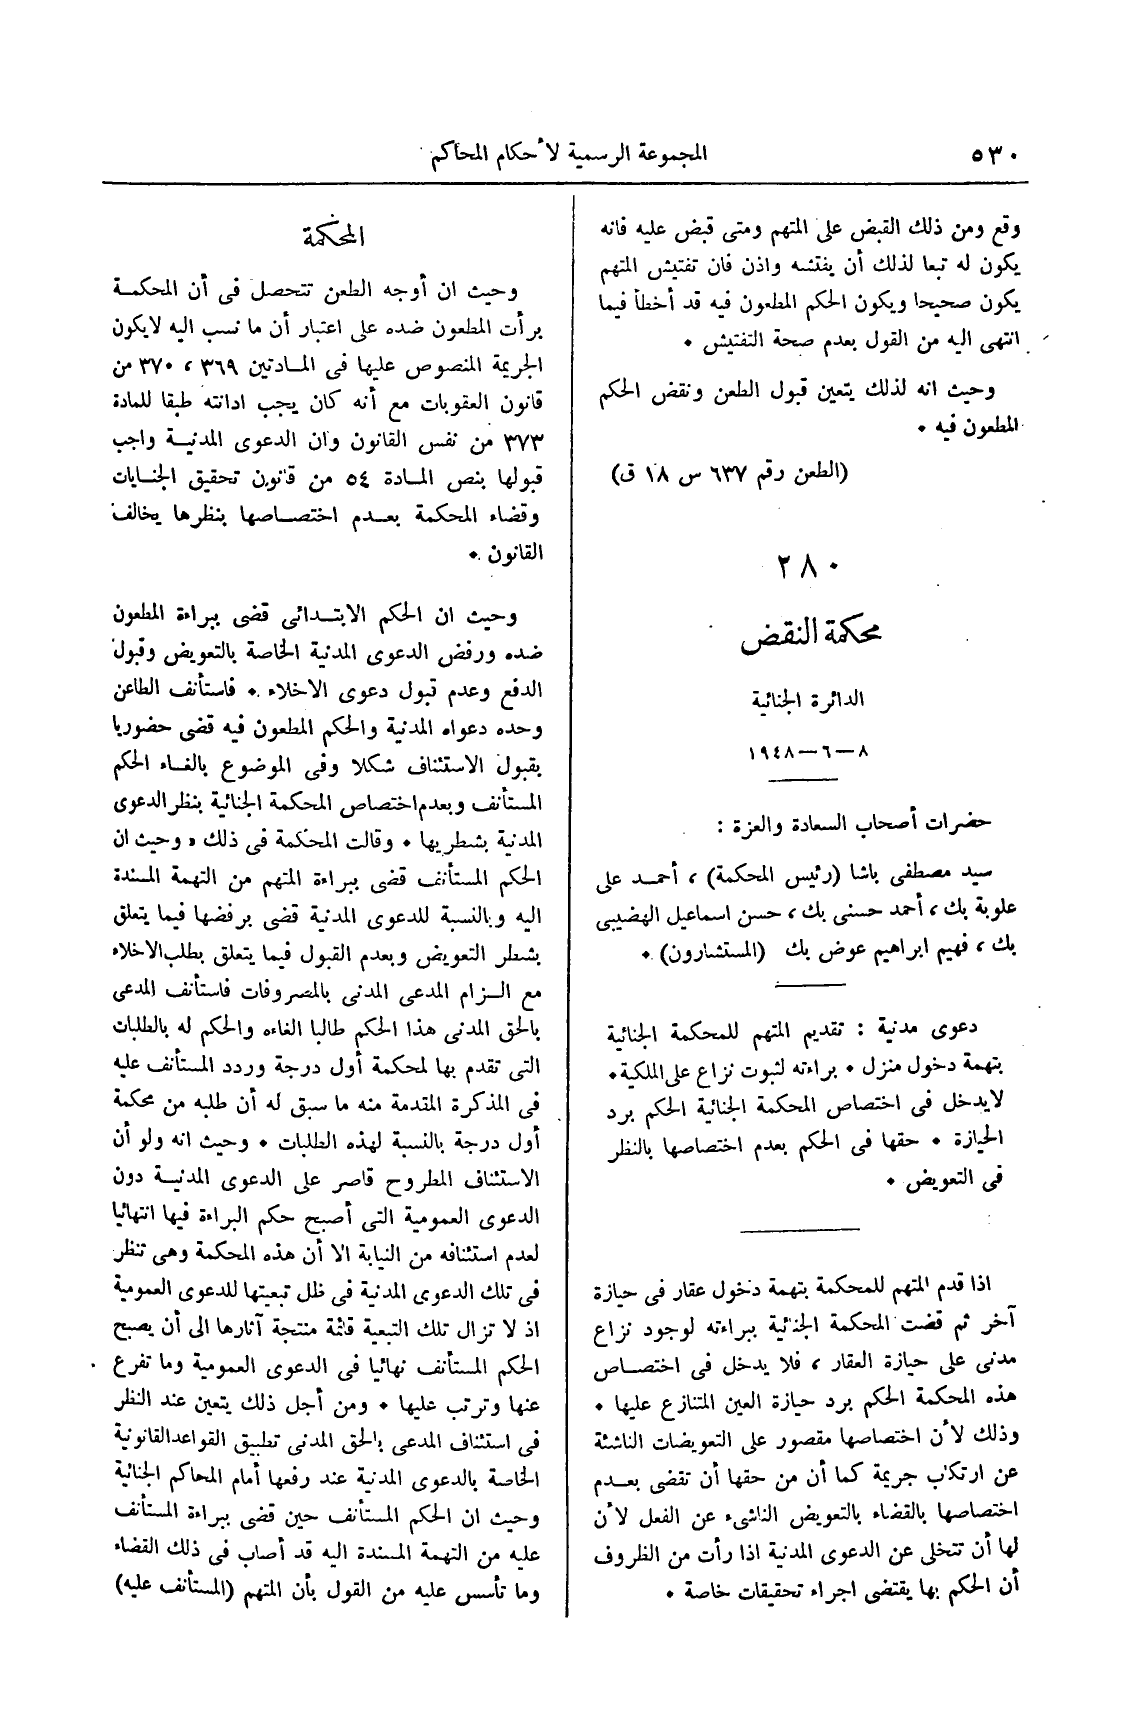 ٥٣٠
المجموعة الرسمية لأحكام المحاكم
وقع ومن ذلك القبض على المتهم ومتى قبض عليه فانه
يكون له تبعا لذلك أن يفتشه واذن فان تفتيش المتهم
يكون صحيحا ويكون الحكم المطعون فيه قد أخطأ فيما
انتهى اليه من القول بعدم صحة التفتيش ٠
وحيث انه لذلك يتعين قبول الطعن ونقض الحكم
المطعون فيه ٠
(الطعن رقم ٦٣٧ س ١٨ ق)
٢٨٠
محكمة النقض
الدائرة الجنائية
٨-٦-١٩٤٨
حضرات أصحاب السعادة والعزة :
سيد مصطفى باشا (رئيس المحكمة) ، أحمد على
علوبة بك ، أحمد حسنى بك ، حسن اسماعيل الهضيبى
بك ، فهيم ابراهيم عوض بك (المستشارون) ٠
دعوى مدنية : تقديم المتهم للمحكمة الجنائية
بتهمة دخول منزل ٠ براءته لثبوت نزاع على الملكية ٠
لايدخل فى اختصاص المحكمة الجنائية الحكم برد
الحيازة ٠ حقها فى الحكم بعدم اختصاصها بالنظر
فى التعويض ٠
اذا قدم المتهم للمحكمة بتهمة دخول عقار فى حيازة
آخر ثم قضت المحكمة الجنائية ببراءته لوجود نزاع
مدنى على حيازة العقار ، فلا يدخل فى اختصاص
هذه المحكمة الحكم برد حيازة العين المتنازع عليها ٠
وذلك لأن اختصاصها مقصور على التعويضات الناشئة
عن ارتكاب جريمة كما أن من حقها أن تقضى بعدم
اختصاصها بالقضاء بالتعويض الناشىء عن الفعل لأن
لها أن تتخلى عن الدعوى المدنية اذا رأت من الظروف
أن الحكم بها يقتضى اجراء تحقيقات خاصة ٠
المحكمة
وحيث ان أوجه الطعن تتحصل فى أن المحكمة
برأت المطعون ضده على اعتبار أن ما نسب اليه لايكون
الجريمة المنصوص عليها فى المادتين ٣٦٩ ، ٣٧٠ من
قانون العقوبات مع أنه كان يجب ادانته طبقا للمادة
٣٧٣ من نفس القانون وان الدعوى المدنية واجب
قبولها بنص المادة ٥٤ من قانون تحقيق الجنايات
وقضاء المحكمة بعدم اختصاصها بنظرها يخالف
القانون ٠
وحيث ان الحكم الابتدائى قضى ببراءة المطعون
ضده ورفض الدعوى المدنية الخاصة بالتعويض وقبول
الدفع وعدم قبول دعوى الاخلاء ٠ فاستأنف الطاعن
وحده دعواه المدنية والحكم المطعون فيه قضى حضوريا
بقبول الاستئناف شكلا وفى الموضوع بالغاء الحكم
المستأنف وبعدم اختصاص المحكمة الجنائية بنظر الدعوى
المدنية بشطريها ٠ وقالت المحكمة فى ذلك « وحيث ان
الحكم المستأنف قضى ببراءة المتهم من التهمة المسندة
اليه وبالنسبة للدعوى المدنية قضى برفضها فيما يتعلق
بشطر التعويض وبعدم القبول فيما يتعلق بطلب الاخلاء
مع الزام المدعى المدنى بالمصروفات فاستأنف المدعى
بالحق المدنى هذا الحكم طالبا الغاءه والحكم له بالطلبات
التى تقدم بها لمحكمة أول درجة وردد المستأنف عليه
فى المذكرة المقدمة منه ما سبق له أن طلبه من محكمة
أول درجة بالنسبة لهذه الطلبات ٠ وحيث انه ولو أن
الاستئناف المطروح قاصر على الدعوى المدنية دون
الدعوى العمومية التى أصبح حكم البراءة فيها انتهائيا
لعدم استئنافه من النيابة الا أن هذه المحكمة وهى تنظر
فى تلك الدعوى المدنية فى ظل تبعيتها للدعوى العمومية
اذ لا تزال تلك التبعية قائمة منتجة آثارها الى أن يصبح
الحكم المستأنف نهائيا فى الدعوى العمومية وما تفرع
عنها وترتب عليها ٠ ومن أجل ذلك يتعين عند النظر
فى استئناف المدعى بالحق المدنى تطبيق القواعد القانونية
الخاصة بالدعوى المدنية عند رفعها أمام المحاكم الجنائية
وحيث ان الحكم المستأنف حين قضى ببراءة المستأنف
عليه من التهمة المسندة اليه قد أصاب فى ذلك القضاء
وما تأسس عليه من القول بأن المتهم (المستأنف عليه)